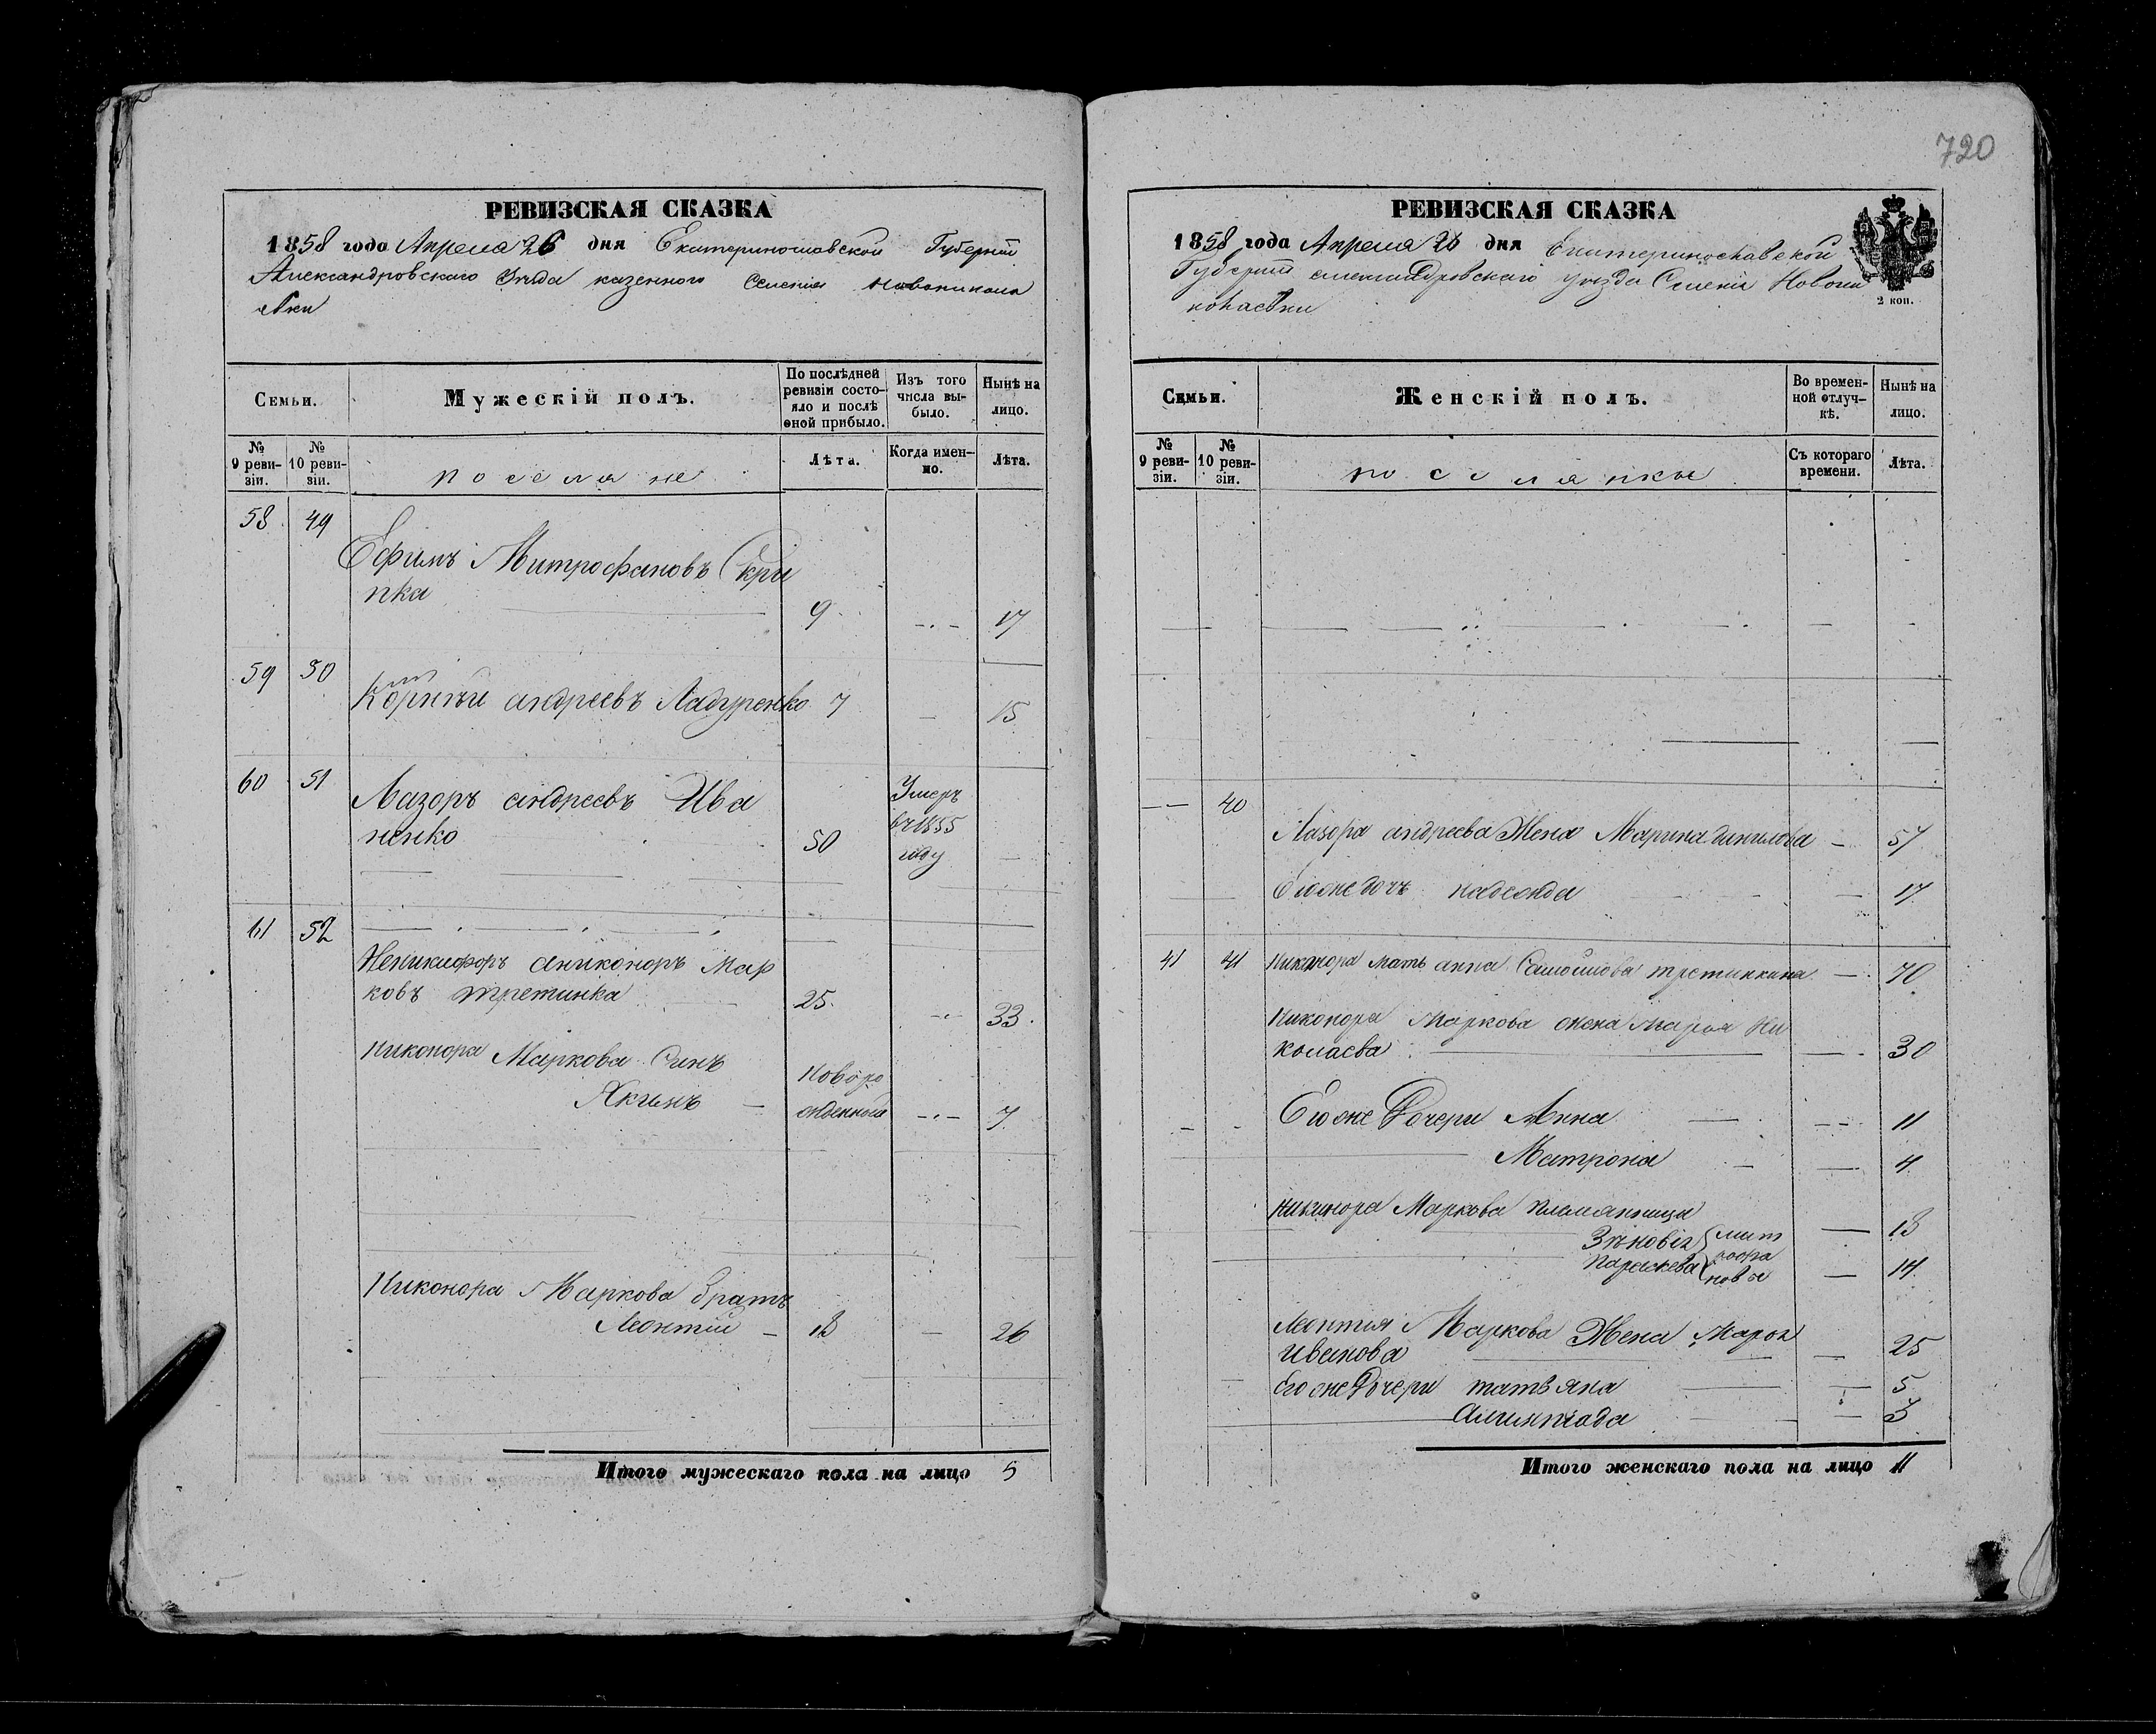 720
РЕВИЗСКАЯ СКАЗКА
1858 года Апреля 26 дня Екатеринославской Губернии
Александровскаго Уезда казенного Селения Новоникола
евки
Семьи.
Мужескій полъ.
По послѣдней ревизіи состояло и послѣ оной прибыло.
Изъ того числа выбыло.
Нынѣ на лицо.
№ 9 ревизіи.
№ 10 ревизіи.
поселяне
Лѣта.
Когда именно.
Лѣта.
58 49
Ефимъ Митрофановъ Скри
пка 9 17
59 50
Корнѣй андреевъ Ладуренко 7 15
60 51
Лазоръ андреевъ Ива
ненко 50
Умеръ
въ 1855
году
61 52
Неникифоръ аниконоръ Мар
ковъ третинка 25 33
Никонора Маркова Сынъ
Якимъ
Новоро
жденный 7
Никонора Маркова братъ
Леонтій 18 26
Итого мужескаго пола на лицо 5
РЕВИЗСКАЯ СКАЗКА
1858 года Апреля 26 дня Екатеринославской
Губерніи александровскаго уезда Селенія Новони
колаевки
2 коп.
Семьи.
Женскій полъ.
Во временной отлучкѣ.
Нынѣ на лицо.
№ 9 ревизіи.
№ 10 ревизіи.
поселянки
Съ котораго времени.
Лѣта.
40
Лазора андреева Жена Марина данилова 57
Егоже дочъ надежда 17
41 41 Никанора мать анна Самойлова третинкина 70
Никонора Маркова жена Марья Ни
колаева 30
Егоже Дочери Анна 11
Матрона 4
Никанора Маркова племянница
Зѣновія 18
Параскева 14
мит
рофа
новы
Леонтия Маркова Жена Марья
Иванова 25
Егоже Дочери татьяна 5
Алимпіада 3
Итого женскаго пола на лицо 11